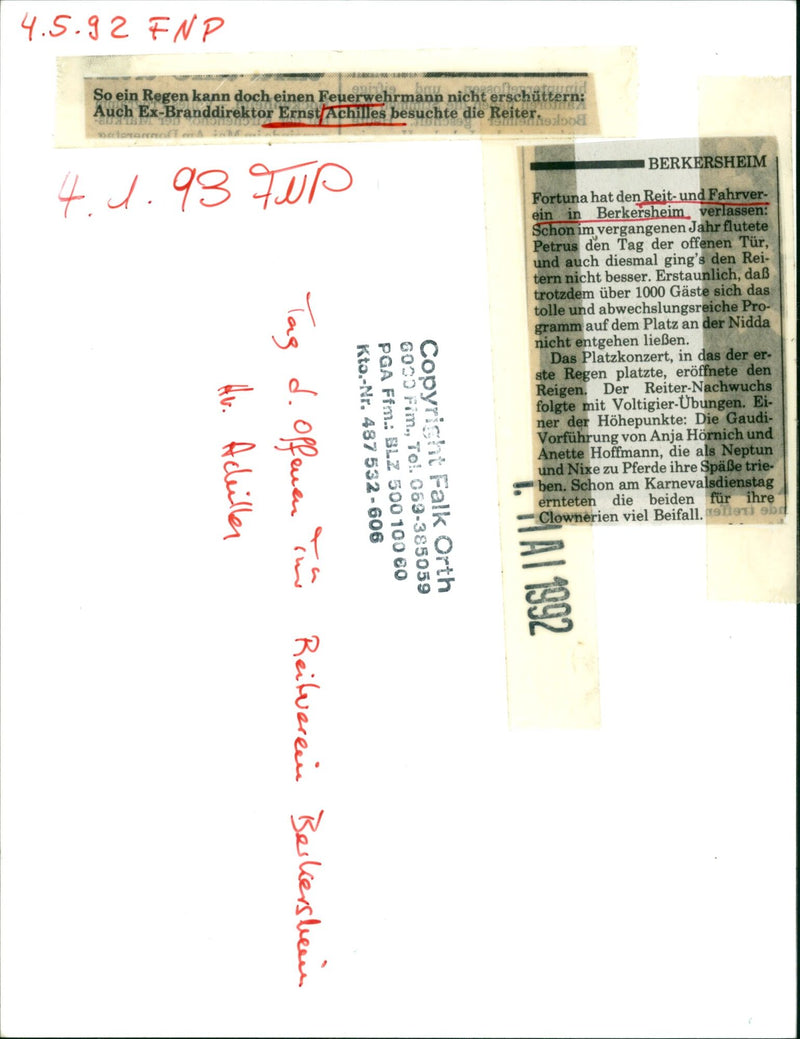 4.5.92 FNP
So ein Regen kann doch einen Feuerwehrmann nicht erschüttern:
Auch Ex-Branddirektor Ernst Achilles besuchte die Reiter.
4.1.93 FNP
BERKERSHEIM
Fortuna hat den Reit- und Fahrver-
ein in Berkersheim verlassen:
Schon im vergangenen Jahr flutete
Petrus den Tag der offenen Tür,
und auch diesmal ging's den Rei-
tern nicht besser. Erstaunlich, daß
trotzdem über 1000 Gäste sich das
tolle und abwechslungsreiche Pro-
gramm auf dem Platz an der Nidda
nicht entgehen ließen.
Das Platzkonzert, in das der er-
ste Regen platzte, eröffnete den
Reigen. Der Reiter-Nachwuchs
folgte mit Voltigier-Übungen. Ei-
ner der Höhepunkte: Die Gaudi-
Vorführung von Anja Hörnich und
Anette Hoffmann, die als Neptun
und Nixe zu Pferde ihre Späße trie-
ben. Schon am Karnevalsdienstag
ernteten die beiden für ihre
Clownerien viel Beifall.
Copyright Falk Orth
6000 Ffm., Tel. 069-385059
PGA Ffm.: BLZ 500 100 60
Kto.-Nr. 487 532 - 606
MAI 1992
Tag d. offenen Tür Reitverein Berkersheim
Hr. Achilles